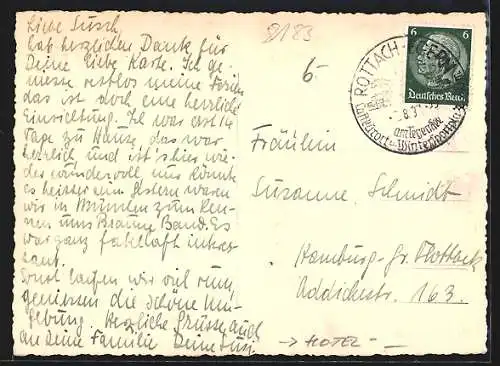 Liebe Susch,
hab herzlichen Dank für
Deine liebe Karte. Ich ge-
niesse restlos meine Ferien
das ist doch eine herrliche
Einrichtung. Ich war erst 14
Tage zu Hause, das war
herrlich und ist's hier wie-
der wundervoll, nur könnte
es heisser sein. Gestern waren
wir in München zum Ren-
nen ums Braune Band. Es
war ganz fabelhaft interes-
sant.
Sonst laufen wir viel rum,
geniessen die schöne Um-
gebung. Herzliche Grüsse auch
an Deine Familie Deine
2183
6
ROTTACH-EGERN
am Tegernsee
Luftkurort u. Wintersportplatz
6 6
Deutsches Reich
Fräulein
Susanne Schmidt
Hamburg-Gr. Flottbek
Addickestr. 163.
→ HOTEL -